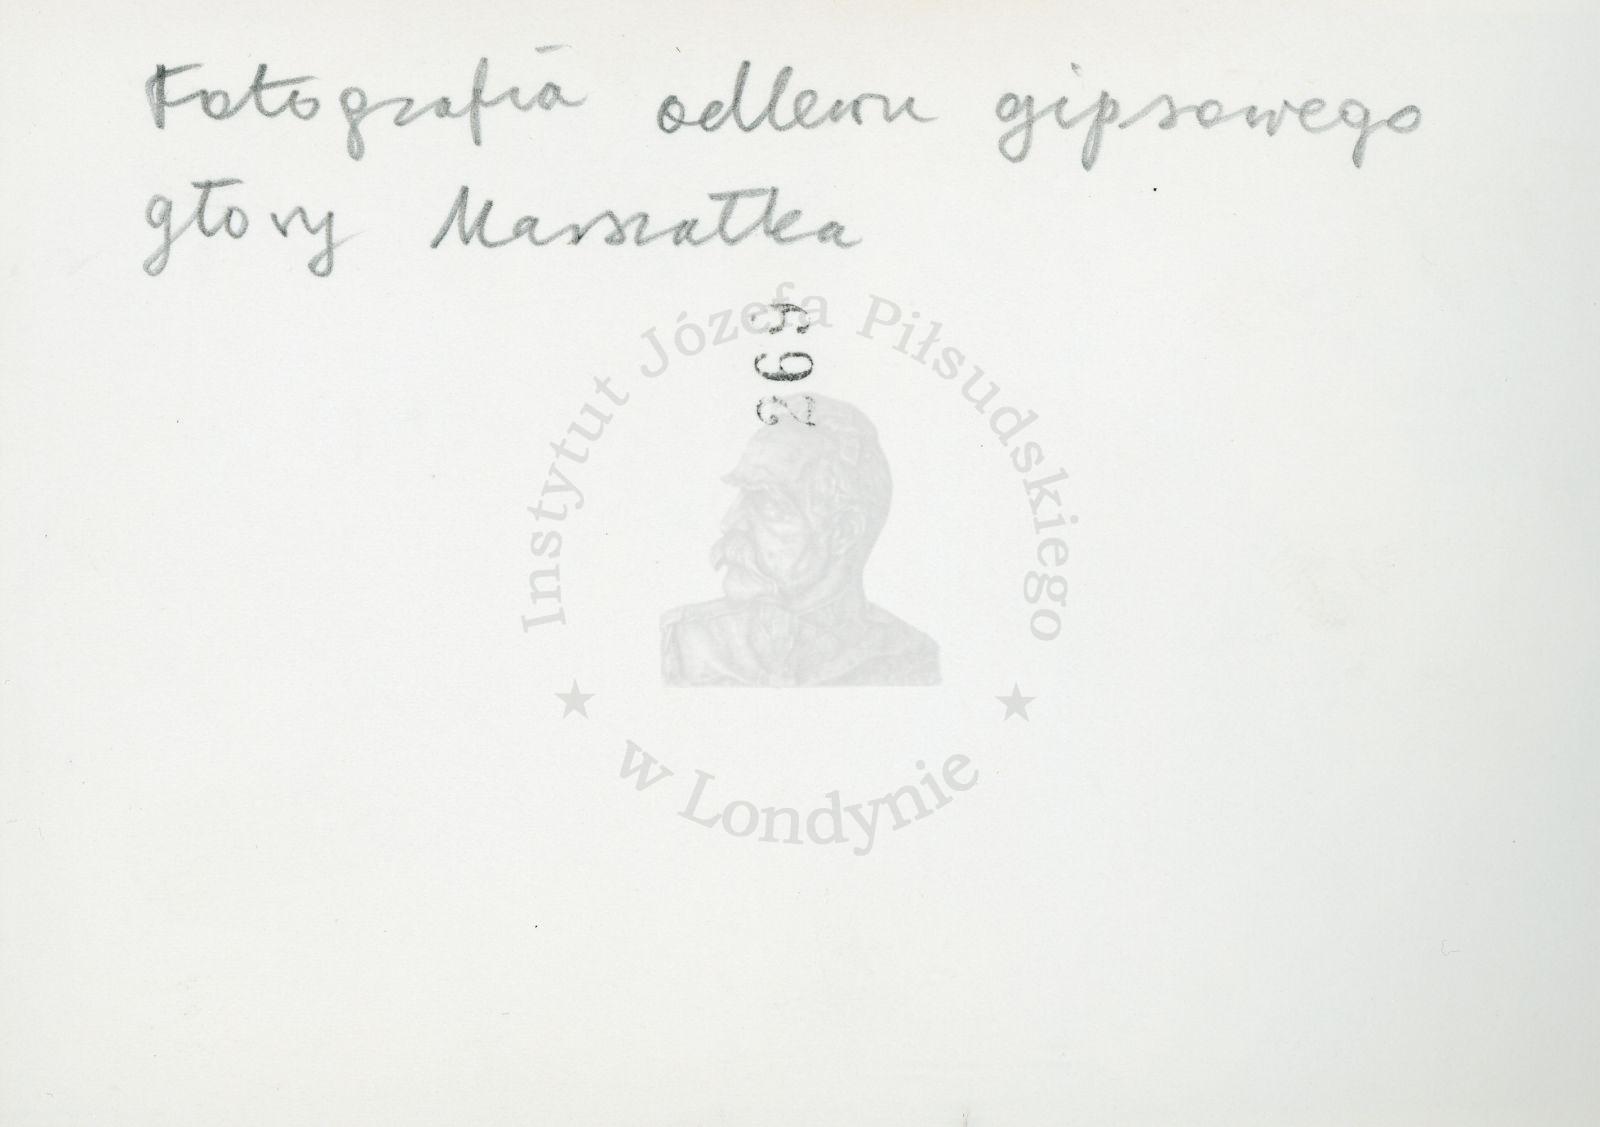 Fotografia odlewu gipsowego
głowy Marszałka
269
Instytut Józefa Piłsudskiego
w Londynie